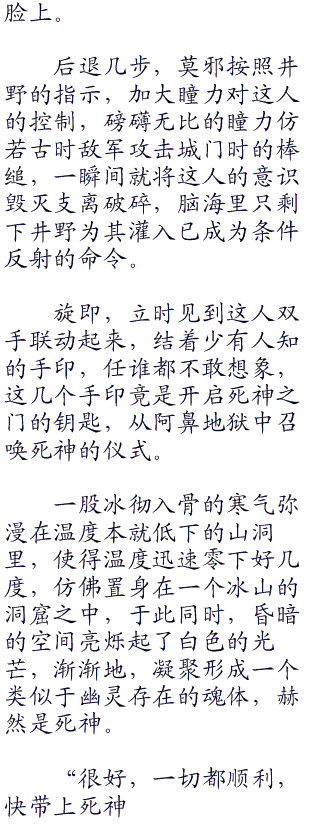 脸上。
后退几步，莫邪按照井
野的指示，加大瞳力对这人
的控制，磅礴无比的瞳力仿
若古时敌军攻击城门时的棒
缒，一瞬间就将这人的意识
毁灭支离破碎，脑海里只剩
下井野为其灌入已成为条件
反射的命令。
旋即，立时见到这人双
手联动起来，结着少有人知
的手印，任谁都不敢想象，
这几个手印竟是开启死神之
门的钥匙，从阿鼻地狱中召
唤死神的仪式。
一股冰彻入骨的寒气弥
漫在温度本就低下的山洞
里，使得温度迅速零下好几
度，仿佛置身在一个冰山的
洞窟之中，于此同时，昏暗
的空间亮烁起了白色的光
芒，渐渐地，凝聚形成一个
类似于幽灵存在的魂体，赫
然是死神。
“很好，一切都顺利，
快带上死神